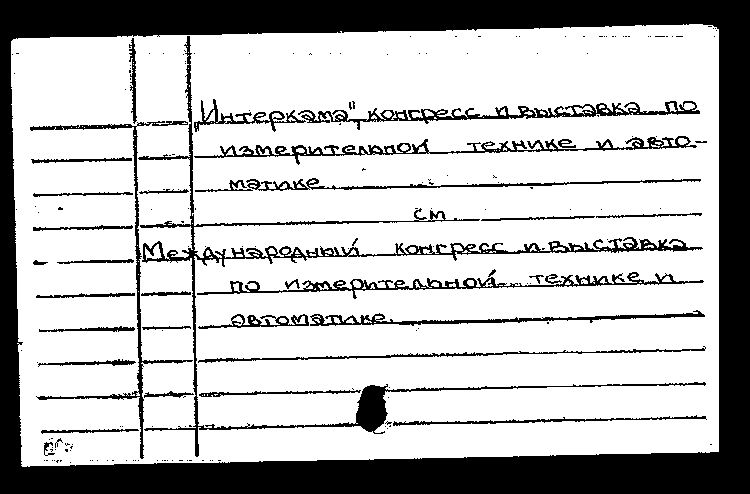 „Интеркама", конгресс и выставка по
измерительной технике и авто-
матике.
см.
Международный конгресс и выставка
по измерительной технике и
автоматике.